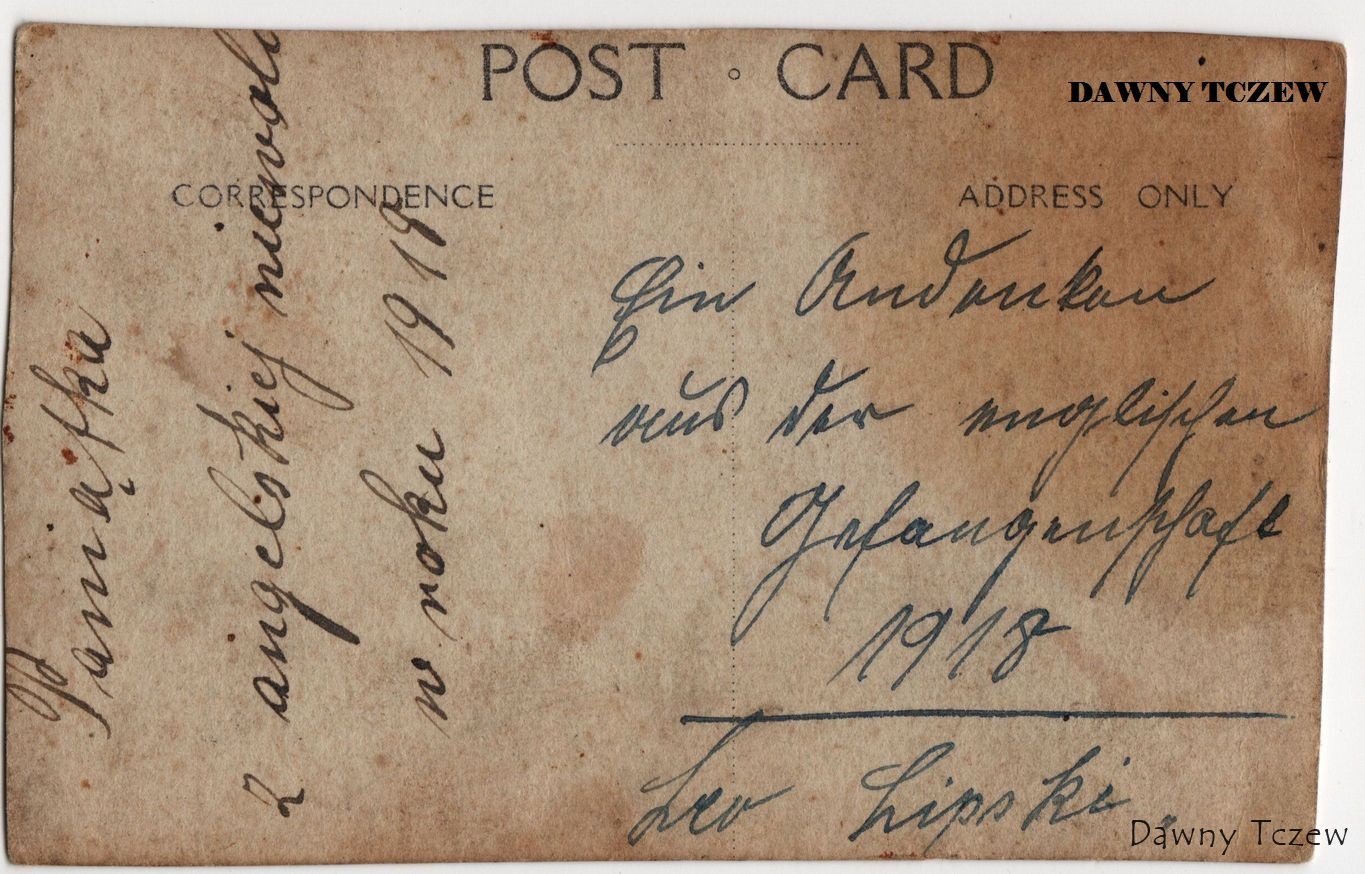 POST CARD
DAWNY TCZEW
CORRESPONDENCE
ADDRESS ONLY
Pamiątka
z angelskiej niewoli
w roku 1918
Ein Andenken
aus der englischen
Gefangenschaft
1918
Leo Lipski.
Dawny Tczew